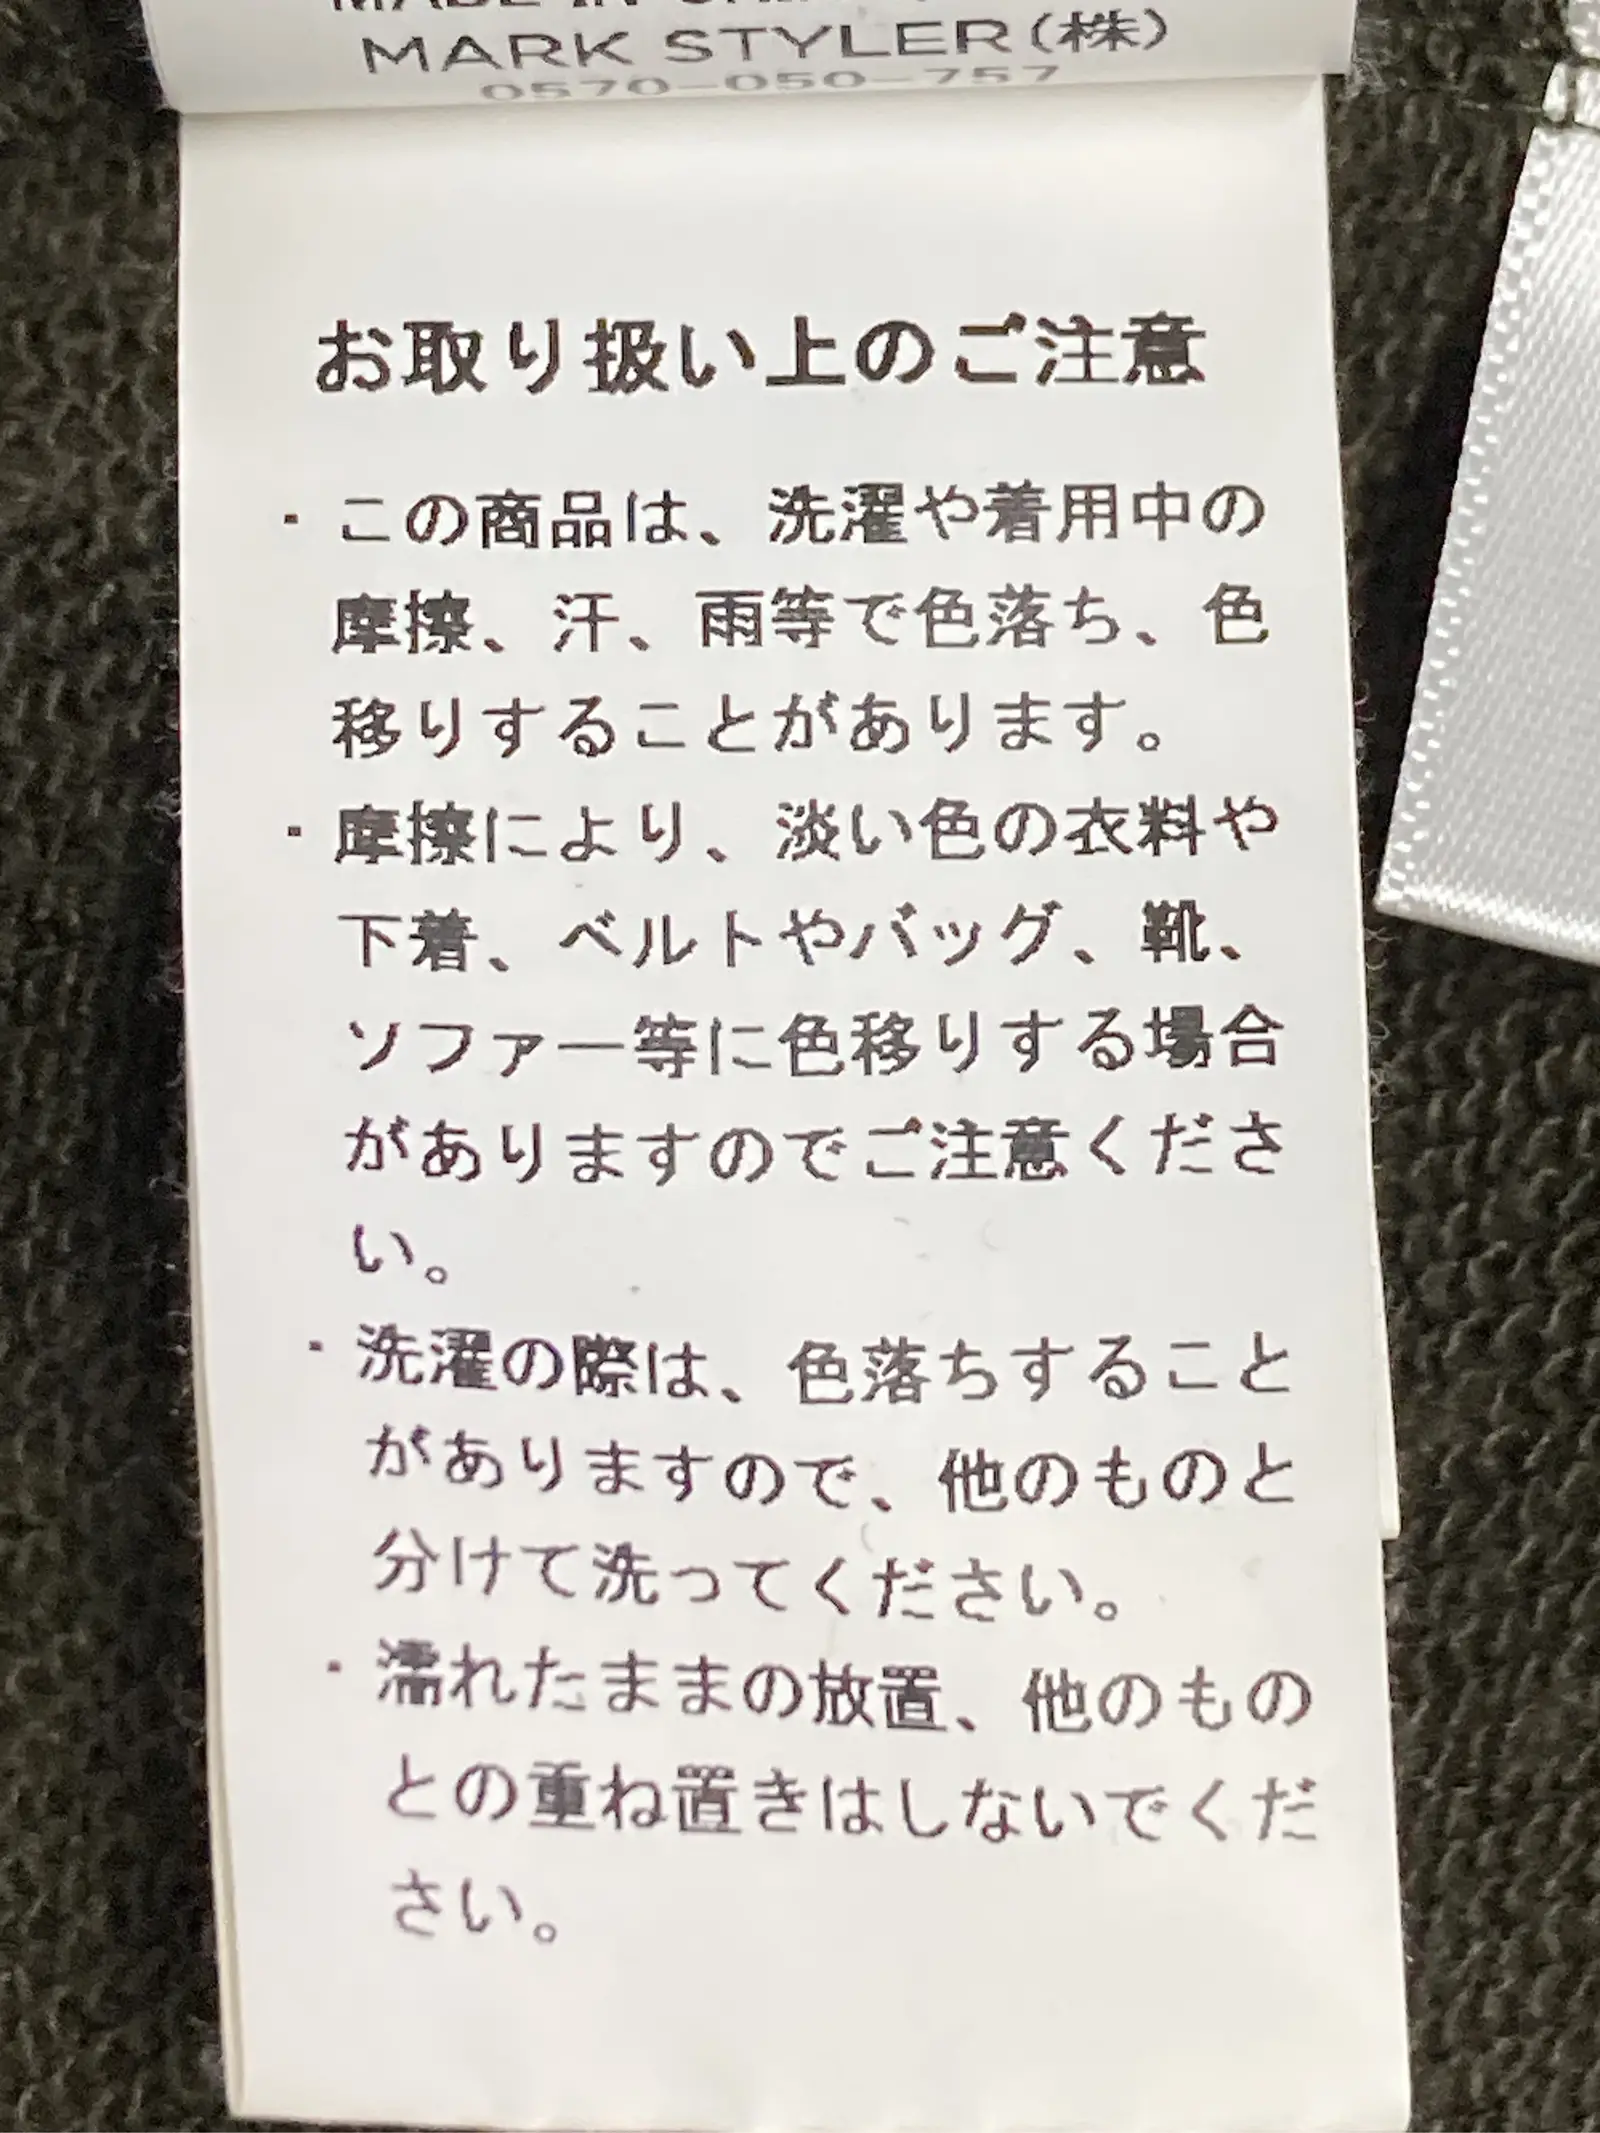 MADE IN
MARK STYLER(株)
0570-050-757
お取り扱い上のご注意
・この商品は、洗濯や着用中の
摩擦、汗、雨等で色落ち、色
移りすることがあります。
・摩擦により、淡い色の衣料や
下着、ベルトやバッグ、靴、
ソファー等に色移りする場合
がありますのでご注意くださ
い。
・洗濯の際は、色落ちすること
がありますので、他のものと
分けて洗ってください。
・濡れたままの放置、他のもの
との重ね置きはしないでくだ
さい。